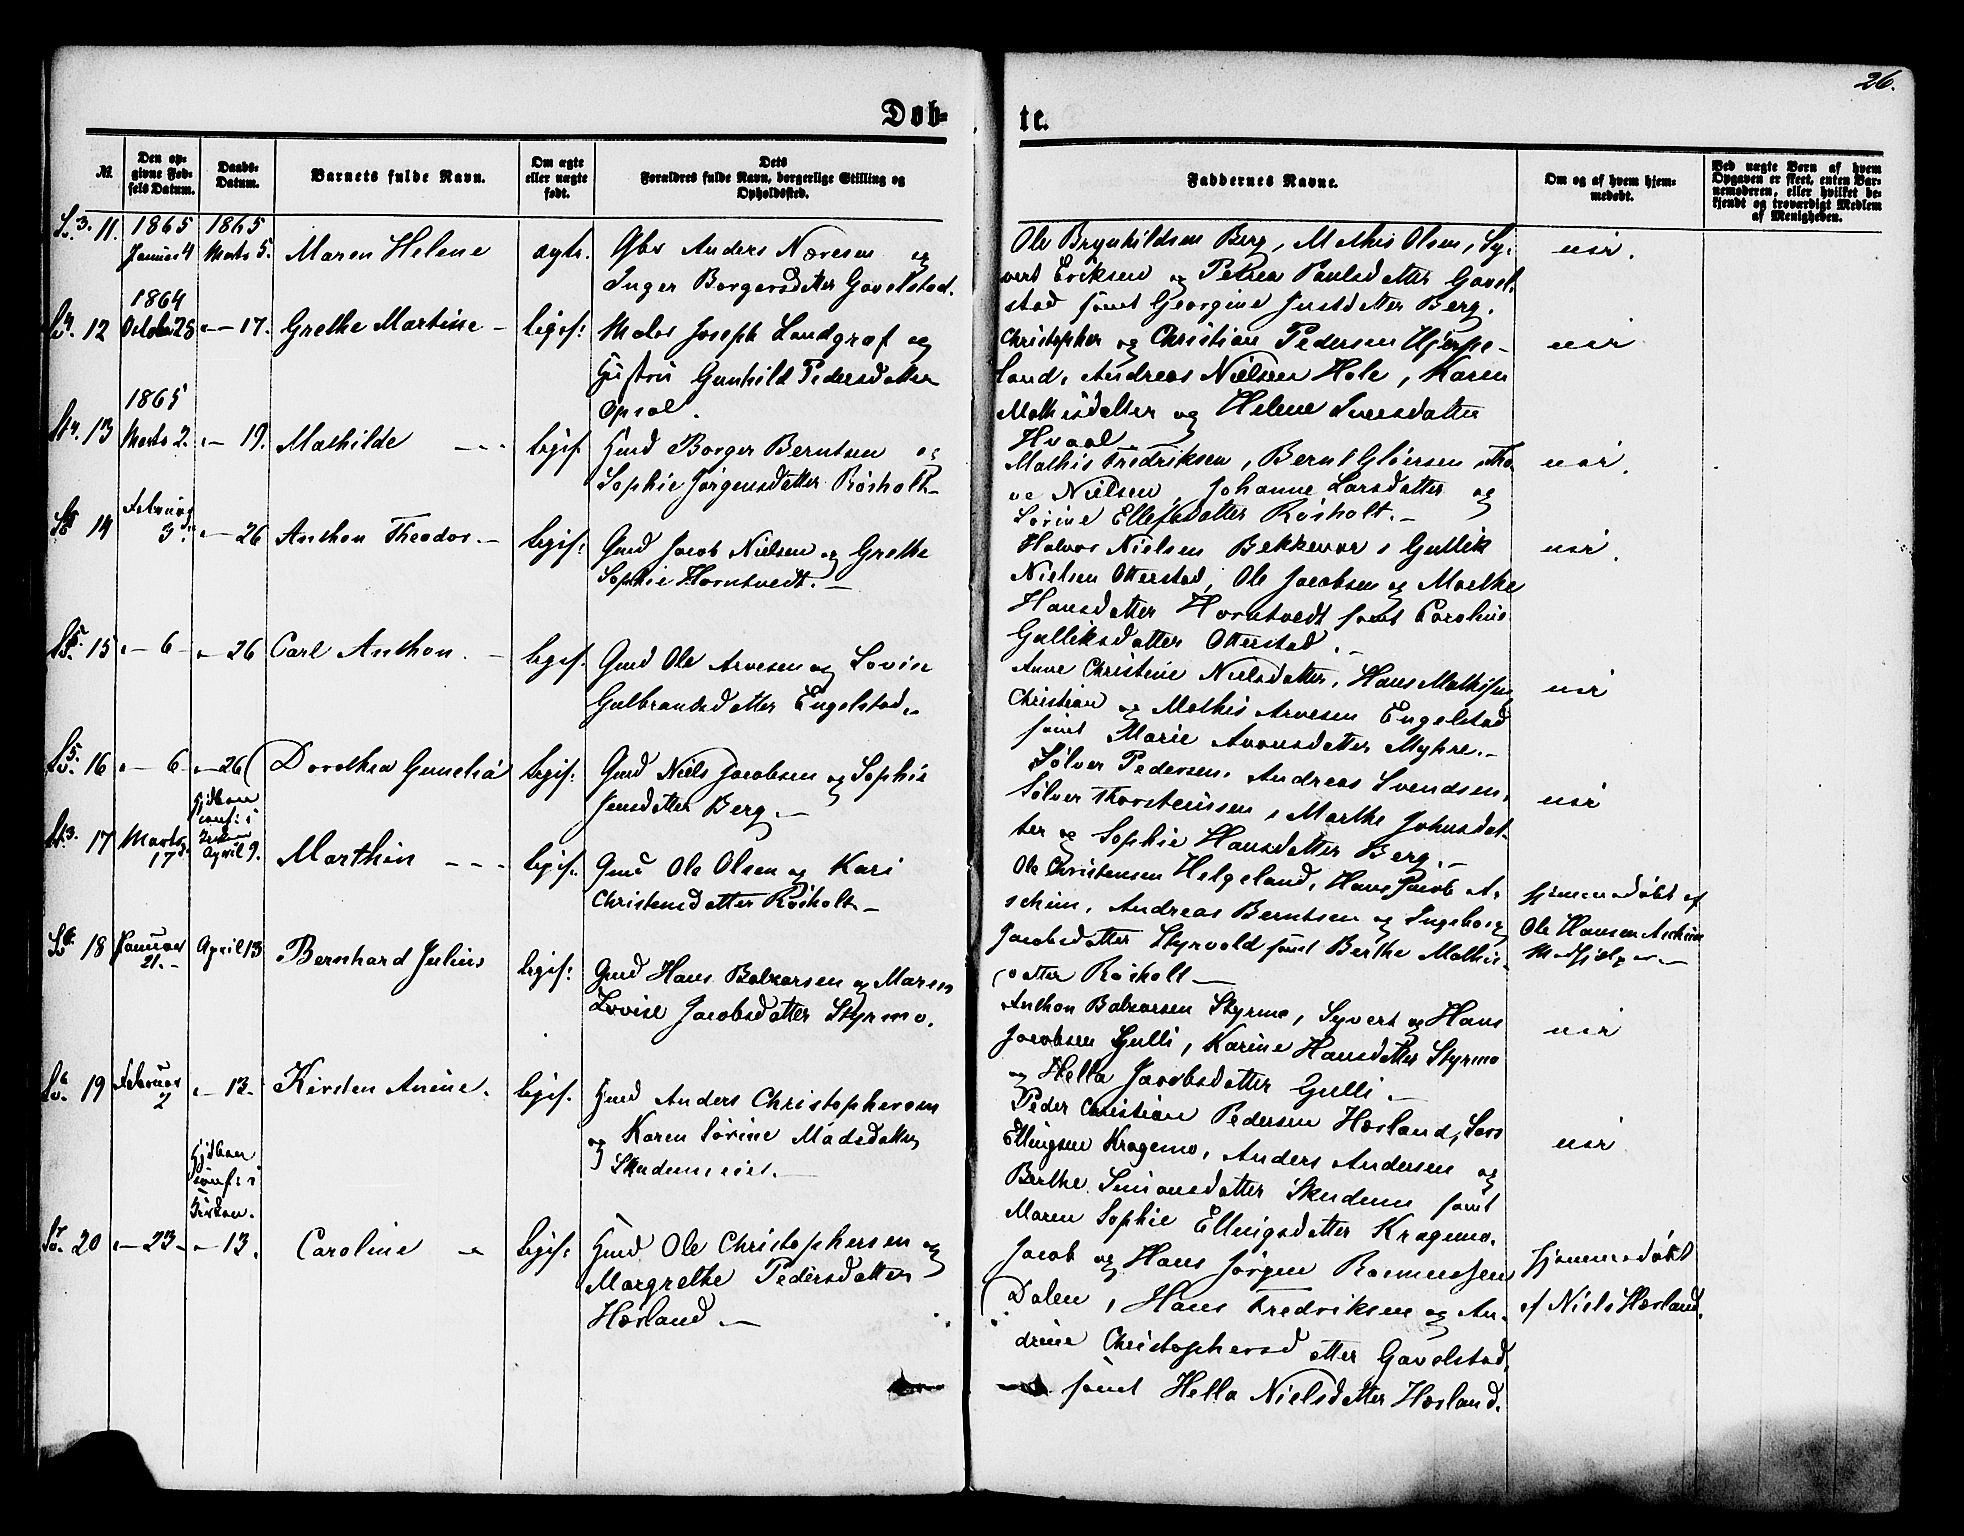 26.
Døb-
te.
№
Den op-
givne Fød-
sels Datum.
Daabs-
Datum.
Barnets fulde Navn.
Om ægte
eller uægte
født.
Dets
Forældres fulde Navn, borgerlige Stilling og
Opholdssted.
Faddernes Navne.
Om og af hvem hjem-
medøbt.
Ved uægte Børn af hvem
Opgaven er skeet, enten Bar-
nemoderen, eller hvilket be-
kjendt og troværdigt Medlem
af Menigheden.
11.
1865
Januar 4
1865
Marts 5.
Maren Helene
ægte.
Gbr Anders Næresen og
Inger Borgersdatter Gavelstad.
Ole Brynhildsen Berg, Mathis Olsen, Sy-
vert Eriksen og Petrea Paulsdatter Gavel-
stad samt Georgine Justdatter Berg.
nei.
12
1864
October 25
17.
Grethe Martine
legif:
Maler Joseph Landgraf og
Hustru Gunhild Pedersdatter
Opsal.
Christopher og Christian Pedersen Hjerpe-
land, Andreas Nielsen Hole, Karen
Mathisdatter og Helene Iversdatter
Hvaal
nei
13
1865
Marts 2.
19.
Mathilde
legif.
Gmd Borger Berntsen og
Sophie Jørgensdatter Røsholt
Mathis Fredriksen, Bernt Gløersen, Tho-
re Nielsen, Johanne Larsdatter og
Sørine Ellefsdatter Røsholt.
nei.
14
Februar
3
26
Anthon Theodor.
legif:
Gmd Jacob Nielsen og Grethe
Sophie Horntvedt.
Halvor Nielsen Bekkevar, Gullik
Nielsen Otterstad, Ole Jacobsen og Marthe
Hansdatter Horntvedt samt Caroline
Gulliksdatter Otterstad.
nei.
15
6
26
Carl Anthon.
legif.
Gmd Ole Arvesen og Lovise
Gulbrandsdatter Engelstad.
Anne Christine Nielsdatter, Hans Mathisen
Christian og Mathis Arvesen Engelstad
samt Marie Aronsdatter Myhre.
nei
16
6
26
Dorothea Gunelia
legif:
Gmd Niels Jacobsen og Sophie
Jensdatter Berg.
Sølver Pedersen, Andreas Svendsen,
Sølver Thorstenssen, Marthe Johnsdat-
ter og Sophie Hansdatter Berg.
nei
17
Marts
17
Hjdben
conf: i
Kirken
April 9.
Marthin
legif.
Gmd Ole Olsen og Kari
Christensdatter Røsholt
Ole Christensen Helgeland, Hans Jacob A-
scheim, Andreas Berntsen og Ingeborg
Jacobsdatter Styrvold samt Berthe Mathis-
datter Røsholt
Hjemmedøbt af
Ole Hansen Ascheim
Medhjelper
18
Januar
21.
April 13
Bernhard Julius
legif:
Gmd Hans Balzarsen og Maren
Lovise Jacobsdatter Styrmo.
Anthon Balzarsen Styrmo, Syvert og Hans
Jacobsen Gulli, Karine Hansdatter Styrmo
og Hella Jacobsdatter Gulli.
nei
19
Februar
2
13.
Kirsten Anine.
legif.
Gmd Anders Christophersen
og Karen Sørine Madsdatter
Skudem
Peder Christian Pedersen Hæsland, Lars
Ellingsen Kragemo, Anders Andersen og
Berthe Simonsdatter Skudem samt
Maren Sophie Ellingsdatter Kragemo.
nei
20
23
Hjdben
conf: i
Kirken.
13.
Caroline
legif:
Gmd Ole Christophersen og
Margrethe Pedersdatter
Hæsland.
Jacob og Hans Jørgen Rasmussen
Dalen, Hans Fredriksen og An-
drine Christophersdatter Gavelstad,
samt Hella Nielsdatter Hæsland.
Hjemmedøbt
af Niels Hæsland.